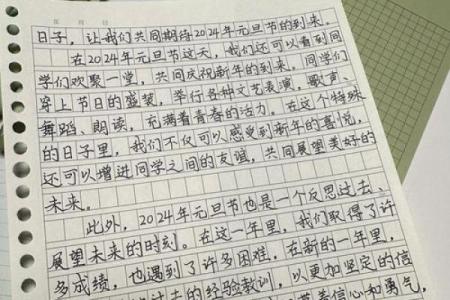 日子，让我们共同期待2024年元旦节的到来。
在2024年元旦节这天，我们还可以看到同
学们欢聚一堂，共同庆祝新年的到来。同学们
穿上节日的盛装，举行各种文艺表演，歌声、
舞蹈、朗读，充满着青春的活力。在这个特殊
的日子里，我们不仅可以感受到新年的喜悦，
还可以增进同学之间的友谊，共同展望美好的
未来。
此外，2024年元旦节也是一个反思过去、
展望未来的时刻。在这一年里，我们取得了许
多成绩，也遇到了许多困难。在新的一年里，
过去的经验教训，以更加坚定的信
着信心和勇气，